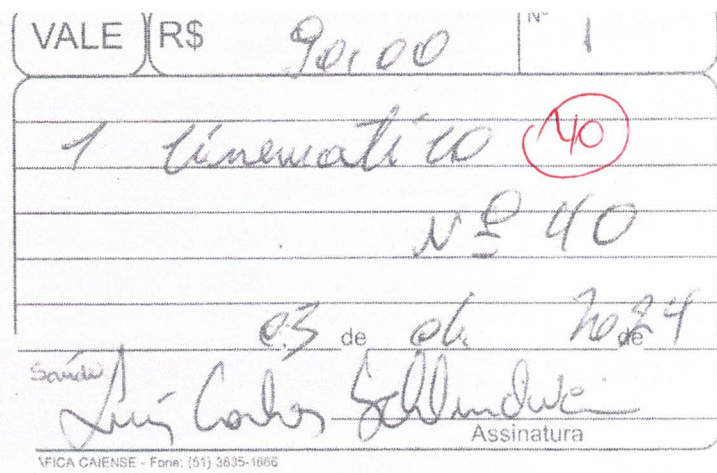 VALE R$ 90,00 Nº 1
1 Cinematico 40
Nº 40
03 de 04 de 2024
Saúde
Luís Carlos
Assinatura
FICA CAIENSE - Fone: (51) 3635-1666